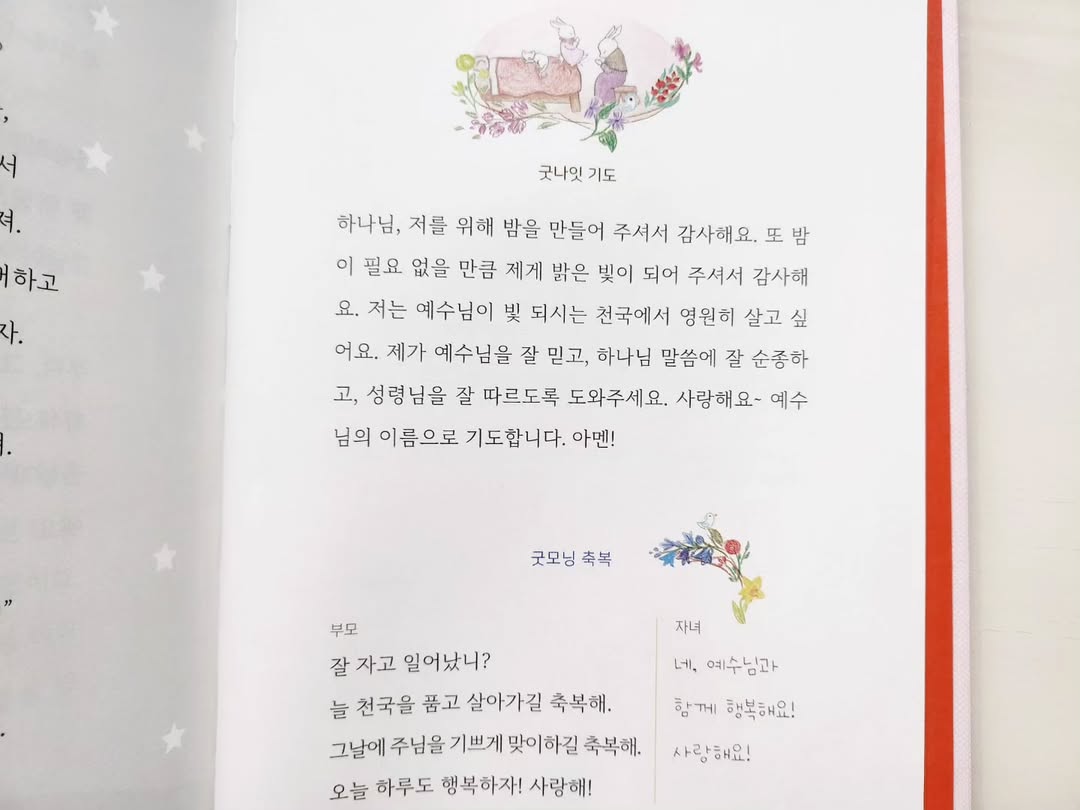 서
져.
하고
자.
”
굿나잇 기도
하나님, 저를 위해 밤을 만들어 주셔서 감사해요. 또 밤
이 필요 없을 만큼 제게 밝은 빛이 되어 주셔서 감사해
요. 저는 예수님이 빛 되시는 천국에서 영원히 살고 싶
어요. 제가 예수님을 잘 믿고, 하나님 말씀에 잘 순종하
고, 성령님을 잘 따르도록 도와주세요. 사랑해요~ 예수
님의 이름으로 기도합니다. 아멘!
굿모닝 축복
부모
잘 자고 일어났니?
늘 천국을 품고 살아가길 축복해.
그날에 주님을 기쁘게 맞이하길 축복해.
오늘 하루도 행복하자! 사랑해!
자녀
네, 예수님과
함께 행복해요!
사랑해요!